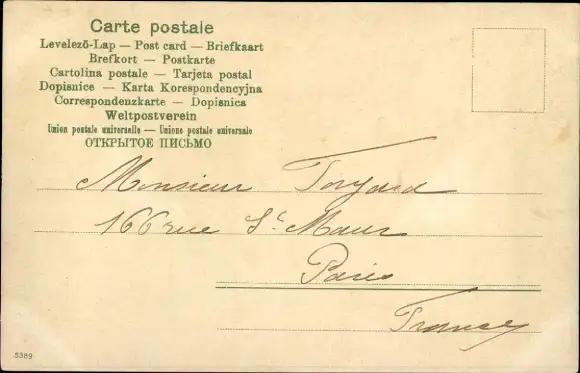 Carte postale
Levelező-Lap — Post card — Briefkaart
Brefkort — Postkarte
Cartolina postale — Tarjeta postal
Dopisnice — Karta Korespondencyjna
Correspondenzkarte — Dopisnica
Weltpostverein
Union postale universelle — Unione postale universale
ОТКРЫТОЕ ПИСЬМО
Monsieur
166 rue St Maur
Paris
France
5389